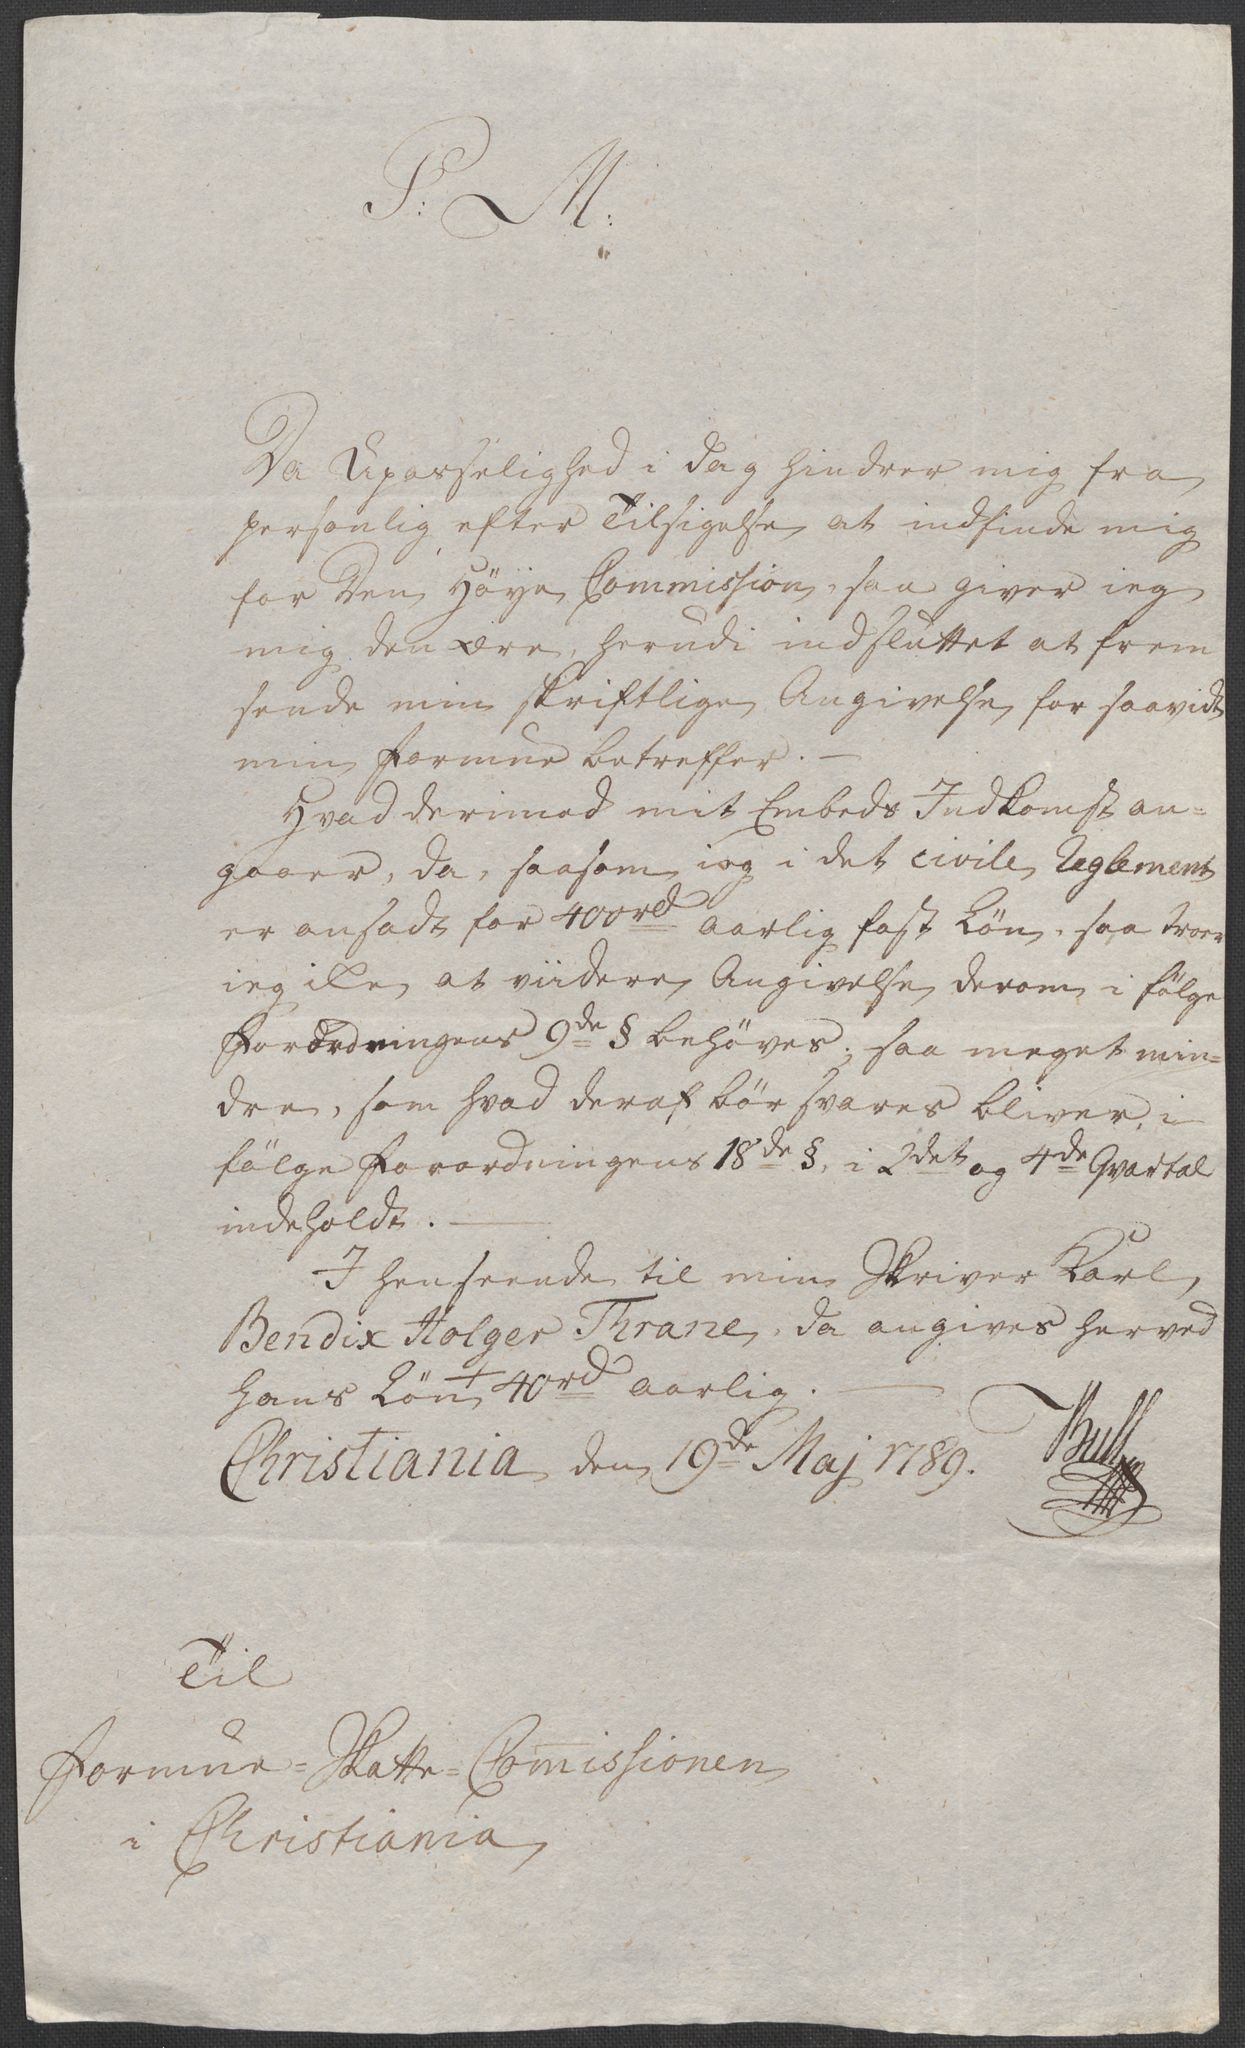 P: M:
Da Upasselighed i dag hindrer mig fra
personlig efter Tilsigelse at indfinde mig
for Den Höye Commission, saa giver ieg
mig den ære, herudi indsluttet at frem
sende min skriftlige Angivelse for saavidt
min Formue betreffer. —
Hvad derimod mit Embeds Indkomst an=
gaaer, da, saasom ieg i det civile Reglement
er ansadt for 400rd aarlig fast Lön, saa troer
ieg ike, at viidere Angivelse derom i fölge
Forordningens 9de § behöves; saa meget min=
dre, som hvad deraf bör svares bliver, i
fölge Forordningens 18de §, i 2det og 4de Qvartal
indeholdt. —
I henseende til min Skriver Karl,
Bendix Holger Thrane, da angives herved
hans Lön + 40rd aarlig. —
Christiania den 19de Maj 1789.
Bull
Til
Formue=Skatte=Com̅issionen
i Christiania